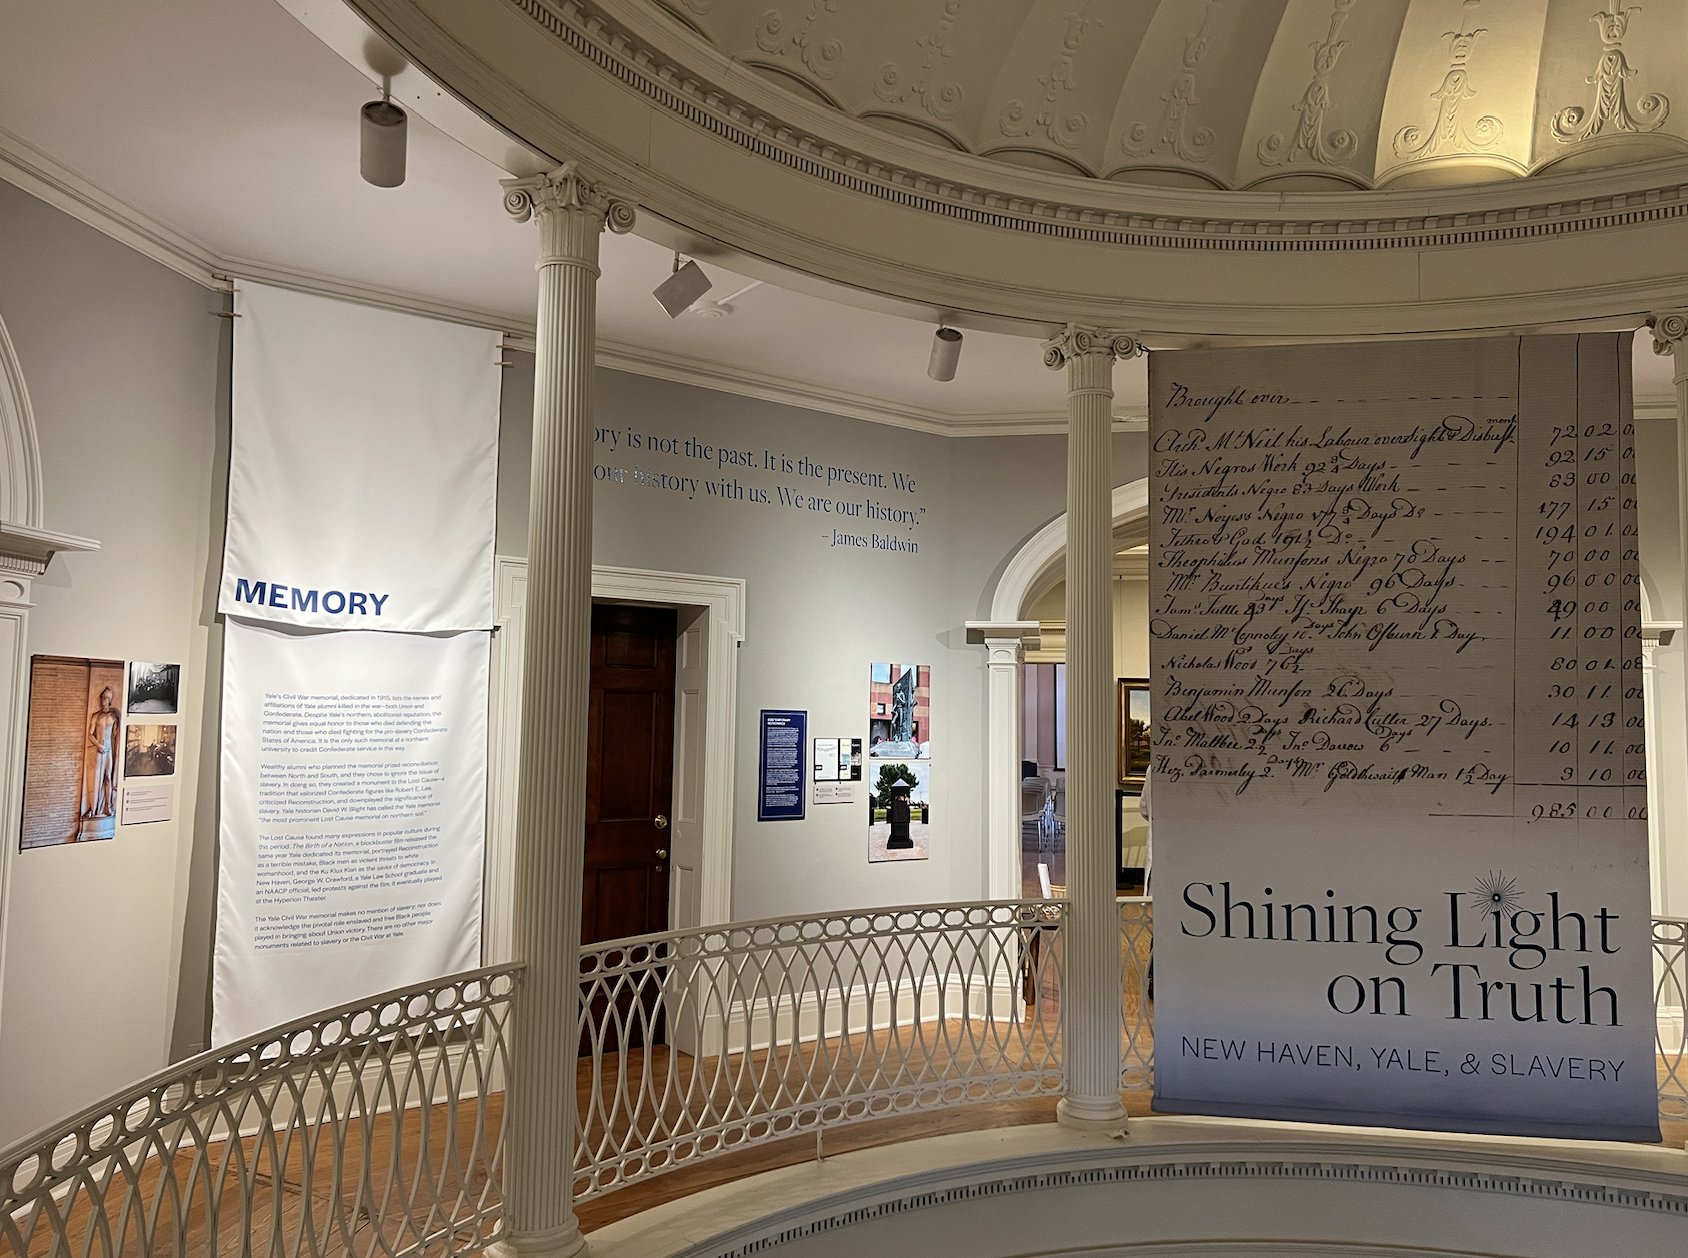 MEMORY
Yale's Civil War memorial, dedicated in 1915, lists the names and
affiliations of Yale alumni killed in the war—both Union and
Confederate. Despite Yale's northern, abolitionist reputation, the
memorial gives equal honor to those who died defending the
nation and those who died fighting for the pro-slavery Confederate
States of America. It is the only such memorial at a northern
university to credit Confederate service in this way.
Wealthy alumni who planned the memorial prized reconciliation
between North and South, and they chose to ignore the issue of
slavery. In doing so, they created a monument to the Lost Cause—a
tradition that valorized Confederate figures like Robert E. Lee,
criticized Reconstruction, and downplayed the significance of
slavery. Yale historian David W. Blight has called the Yale memorial
"the most prominent Lost Cause memorial on northern soil."
The Lost Cause found many expressions in popular culture during
this period. The Birth of a Nation, a blockbuster film released the
same year Yale dedicated its memorial, portrayed Reconstruction
as a terrible mistake, Black men as violent threats to white
womanhood, and the Ku Klux Klan as the savior of democracy. In
New Haven, George W. Crawford, a Yale Law School graduate and
an NAACP official, led protests against the film. It eventually played
at the Hyperion Theater.
The Yale Civil War memorial makes no mention of slavery; nor does
it acknowledge the pivotal role enslaved and free Black people
played in bringing about Union victory. There are no other major
monuments related to slavery or the Civil War at Yale.
ory is not the past. It is the present. We
our history with us. We are our history."
– James Baldwin
Brought over
Arch. Mc Neil his Labour oversight & Disburstment 72 02 00
His Negros Work 92 3/4 Days 92 15 0
Presidents Negro 83 Days Work 83 00 00
Mr. Noyes's Negro 177 3/4 Days Do 177 15 0
Jethro & Gad 191 1/2 Do 194 01 02
Theophilus Munsons Negro 70 Days 70 00 00
Mr. Bunlihue's Negro 96 Days 96 00 00
Tom. Tuttle 43 Days If. Tharp 6 Days 49 00 00
Daniel Mc Connoley 10 Days John Osburn 1 Day 11 00 00
Nicholas Wood 76 1/2 Days 80 01 08
Benjamin Munson 26 Days 30 11 00
Abel Wood 2 Days Richard Cutler 27 Days 14 13 00
Jno. Maltbee 2 1/2 Days Jno Darrow 6 Days 10 11 00
Days Mr. Goldthwaits Man 1 1/2 Day 3 10 00
985 00 00
Shining Light
on Truth
NEW HAVEN, YALE, & SLAVERY